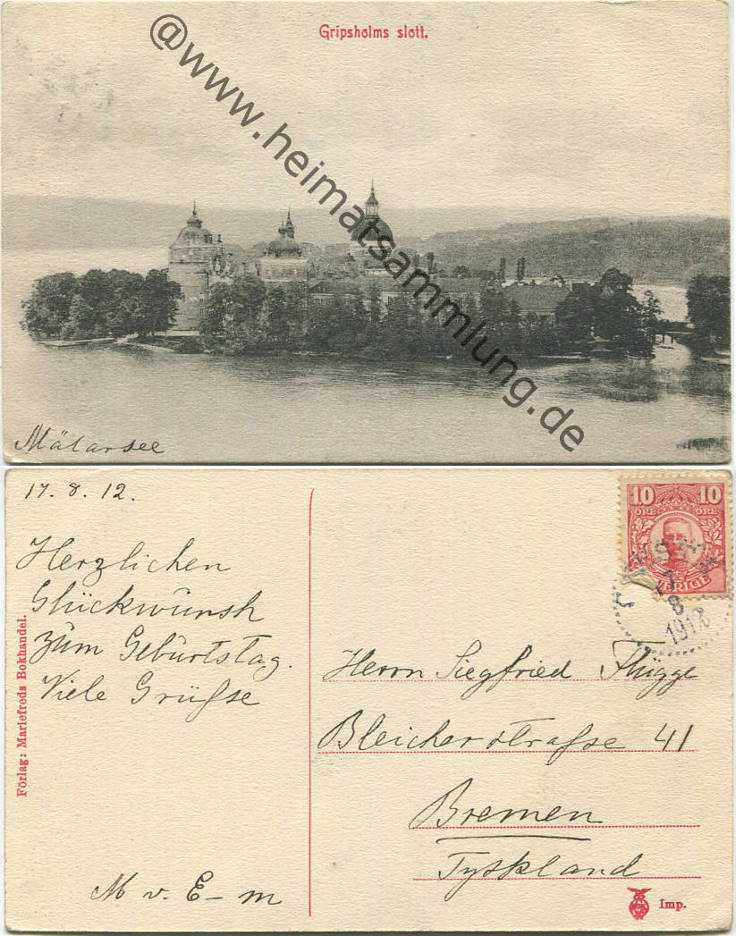 Gripsholms slott.
@www.heimatsammlung.de
Mälarsee
17. 8. 12.
Herzlichen
Glückwunsh
zum Geburtstag.
Viele Grüße
M v. E-m
Förlag: Mariefreds Bokhandel.
10 10
ÖRE ÖRE
SVERIGE
8
1912
Herrn Siegfried Flügge
Bleicherstraße 41
Bremen
Tyskland
Imp.